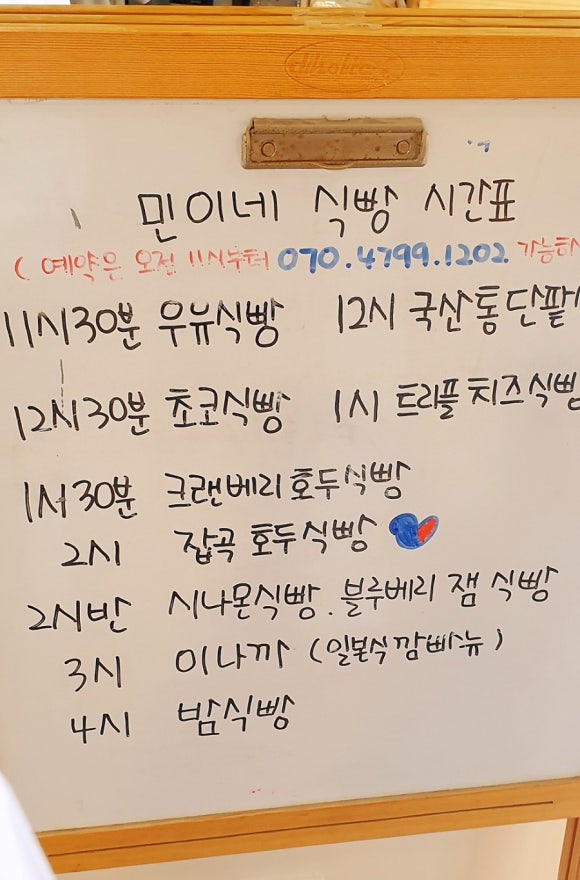 민이네 식빵 시간표
( 예약은 오전 11시부터 070.4799.1202 가능하
11시30분 우유식빵 12시 국산통단팥
12시30분 초코식빵 1시 트리플치즈식빵
1시30분 크랜베리호두식빵
2시 잡곡 호두식빵
2시반 시나몬식빵. 블루베리 잼 식빵
3시 이나까 (일본식깜빠뉴)
4시 밤식빵